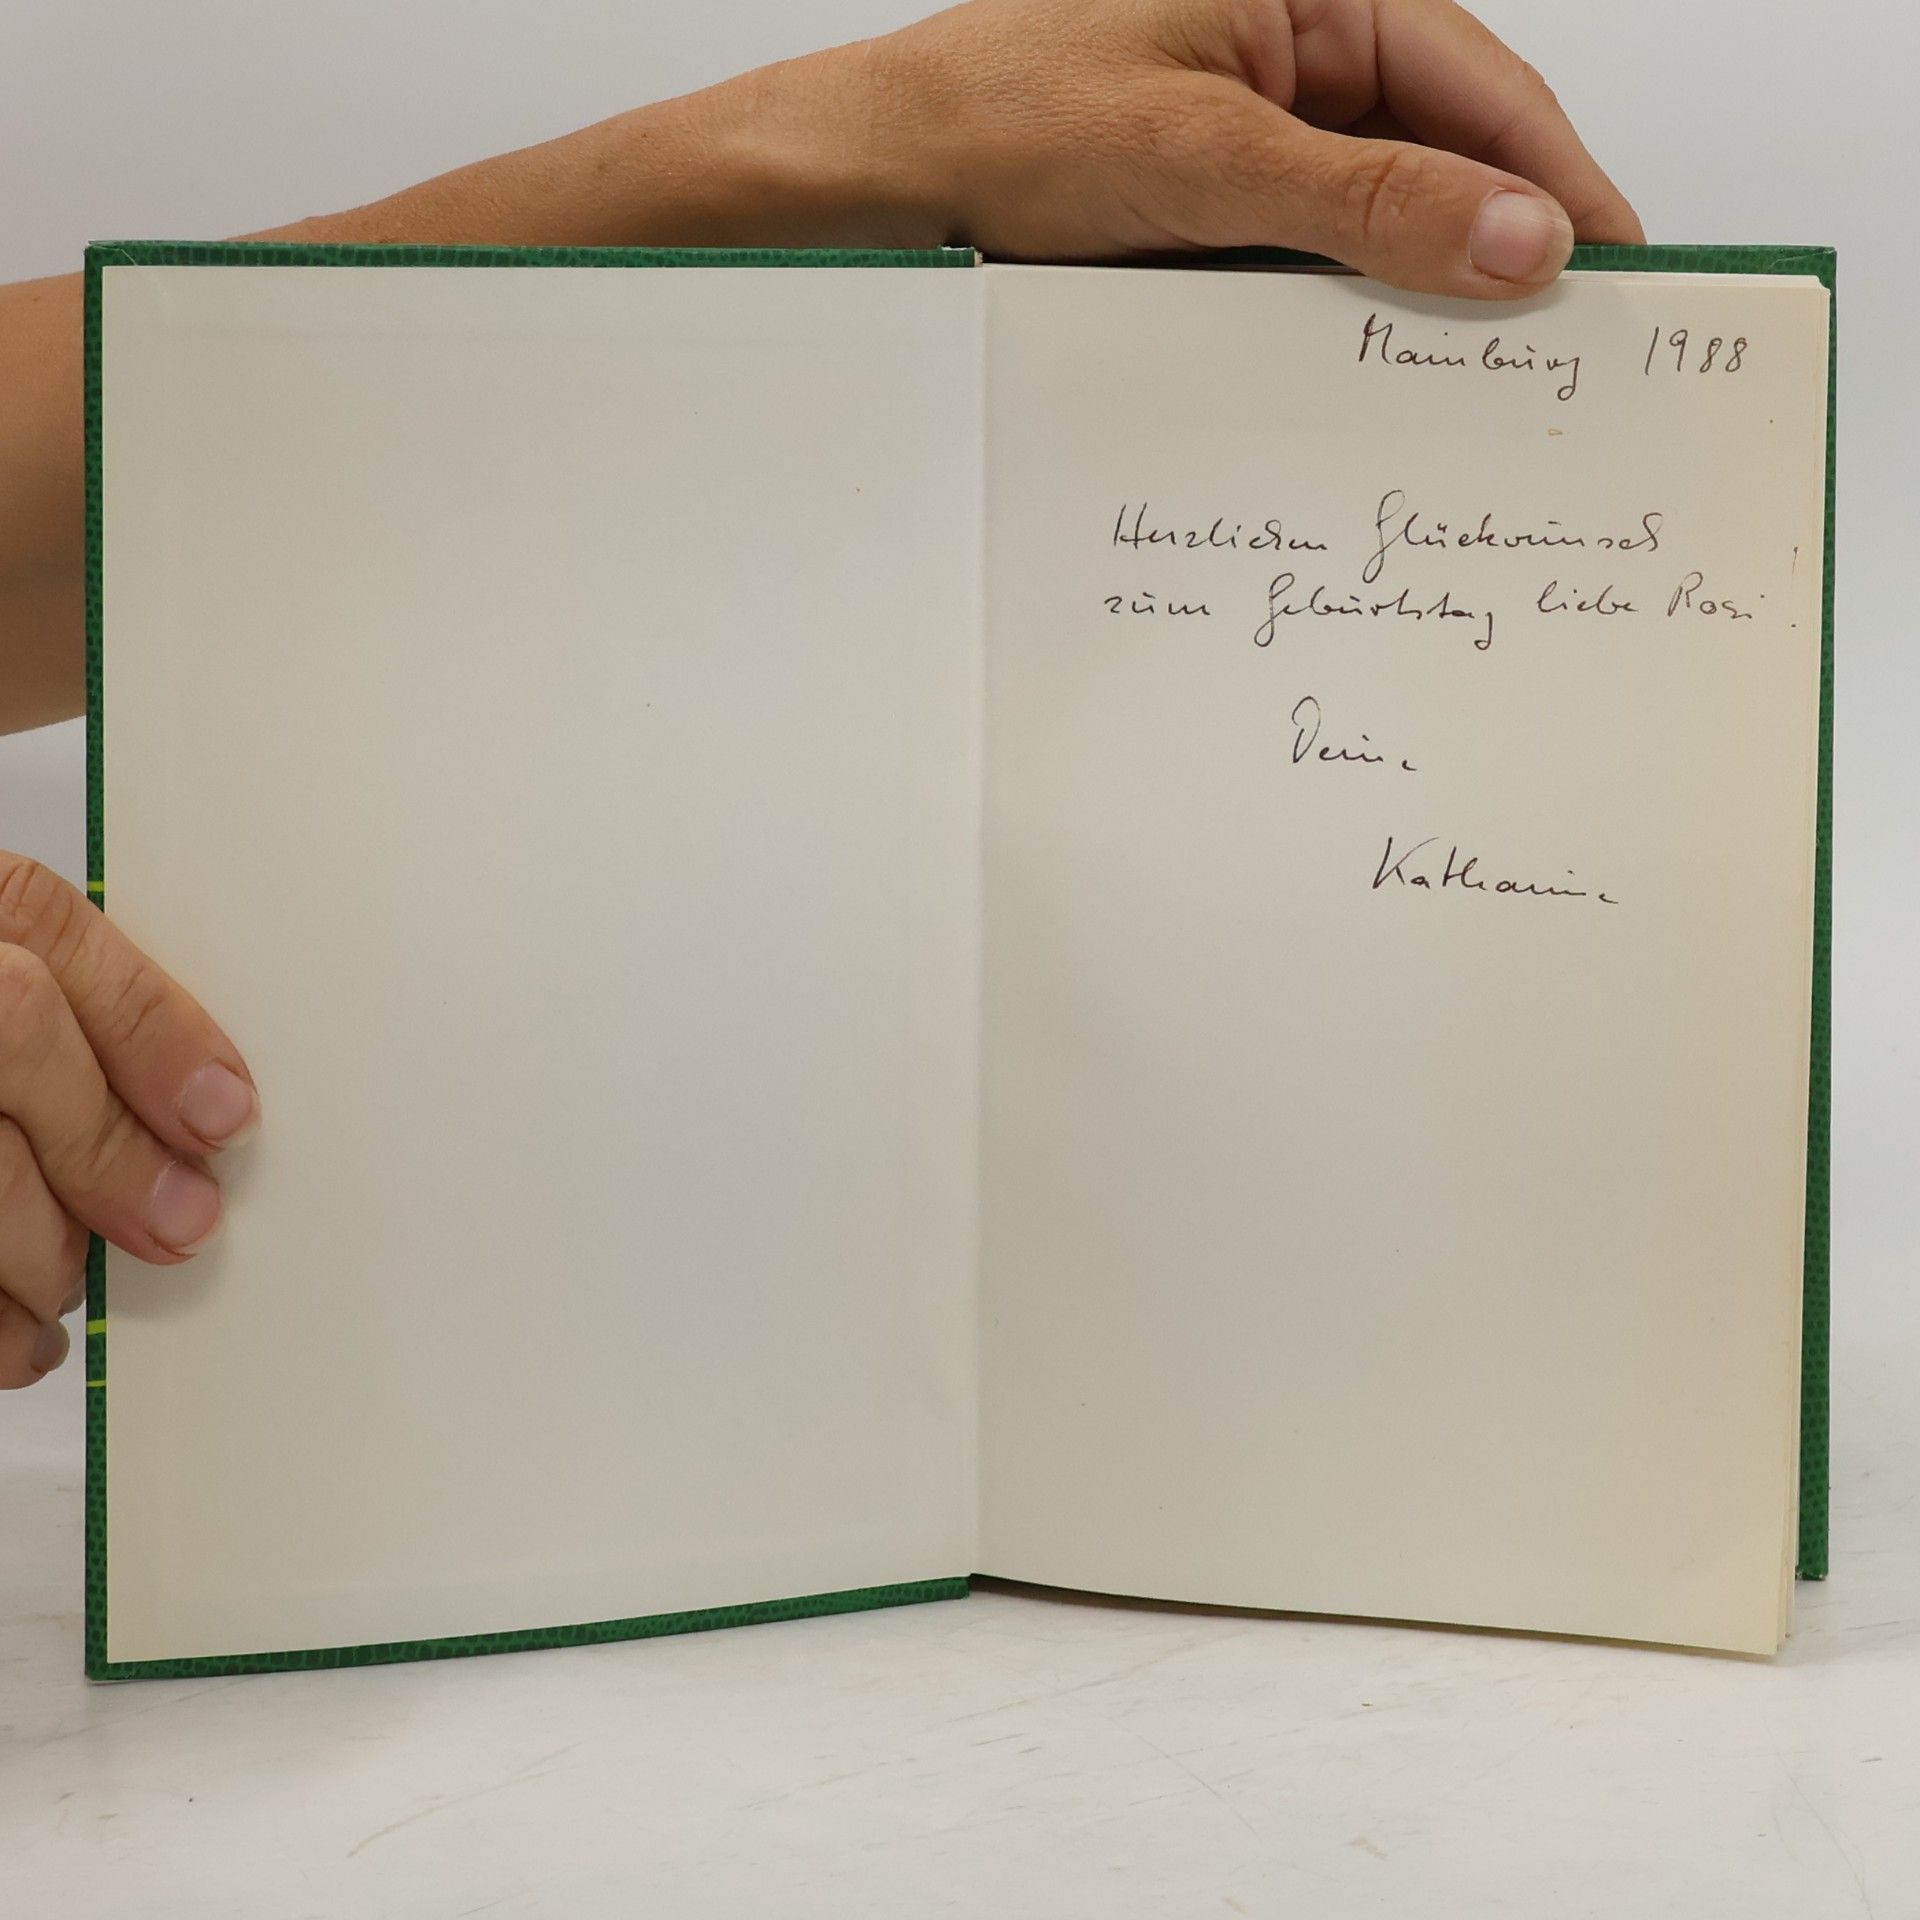 Mainburg 1988
Herzlichen Glückwunsch
zum Geburtstag liebe Rosi!
Deine
Katharina